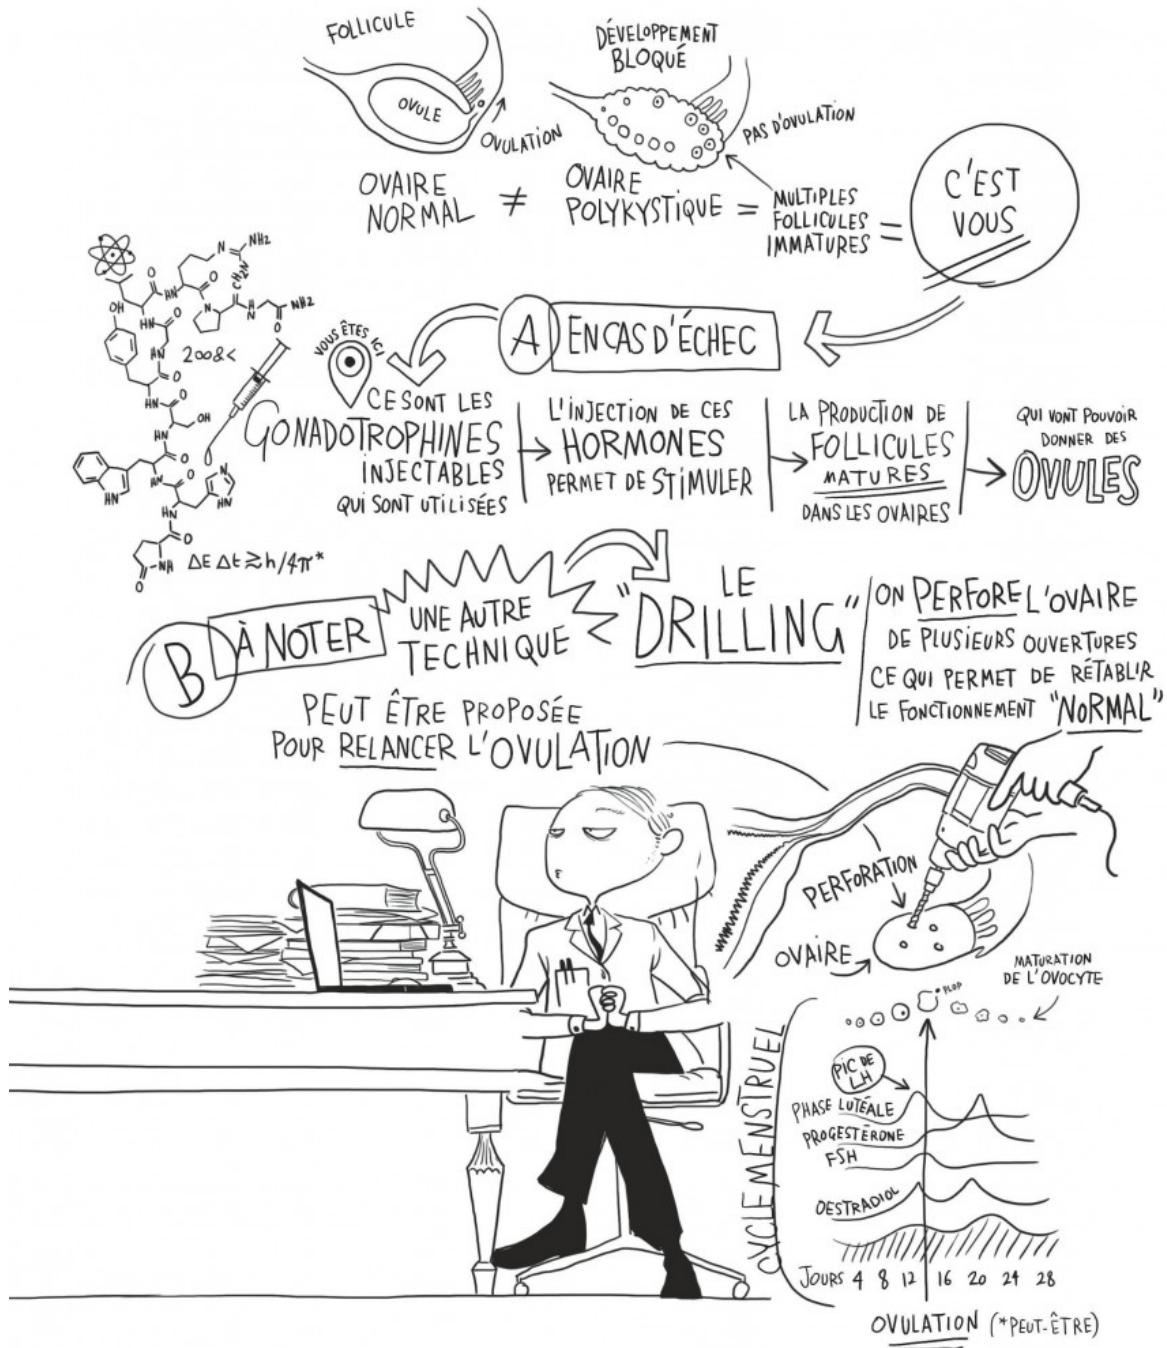 FOLLICULE
OVULE
OVULATION
OVAIRE
NORMAL
≠
DÉVELOPPEMENT
BLOQUÉ
PAS D'OVULATION
OVAIRE
POLYKYSTIQUE =
MULTIPLES
FOLLICULES
IMMATURES
=
C'EST
VOUS
A EN CAS D'ÉCHEC
NH2
N
CH2N
HN
O
O
O
OH
HN
N
N
H
NH2
O
HN
O
200&<
HN
O
HN
OH
O
HN
O
N
HN
HN
O
HN
O
NH
O
ΔE Δt ≳ h/4π*
VOUS ÊTES ICI
CE SONT LES
GONADOTROPHINES
INJECTABLES
QUI SONT UTILISÉES
L'INJECTION DE CES
HORMONES
PERMET DE STIMULER
LA PRODUCTION DE
FOLLICULES
MATURES
DANS LES OVAIRES
QUI VONT POUVOIR
DONNER DES
OVULES
B À NOTER
UNE AUTRE
TECHNIQUE
LE
"DRILLING"
ON PERFORE L'OVAIRE
DE PLUSIEURS OUVERTURES
CE QUI PERMET DE RÉTABLIR
LE FONCTIONNEMENT "NORMAL"
PEUT ÊTRE PROPOSÉE
POUR RELANCER L'OVULATION
PERFORATION
OVAIRE
MATURATION
DE L'OVOCYTE
PLOP
CYCLE MENSTRUEL
PIC DE
LH
PHASE LUTÉALE
PROGESTÉRONE
FSH
OESTRADIOL
JOURS 4 8 12 16 20 24 28
OVULATION (*PEUT-ÊTRE)